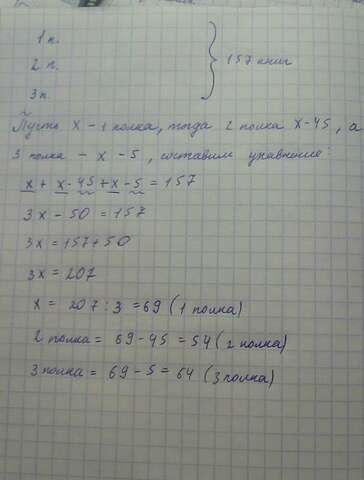 1 п.
2 п.
3 п.
157 книг
Пусть x - 1 полка, тогда 2 полка x-45, а
3 полка - x - 5, составим уравнение:
x + x-45+x-5=157
3x - 50 = 157
3x = 157+50
3x = 207
x = 207 : 3 = 69 (1 полка)
2 полка = 69 - 45 = 54 (2 полка)
3 полка = 69 - 5 = 64 (3 полка)